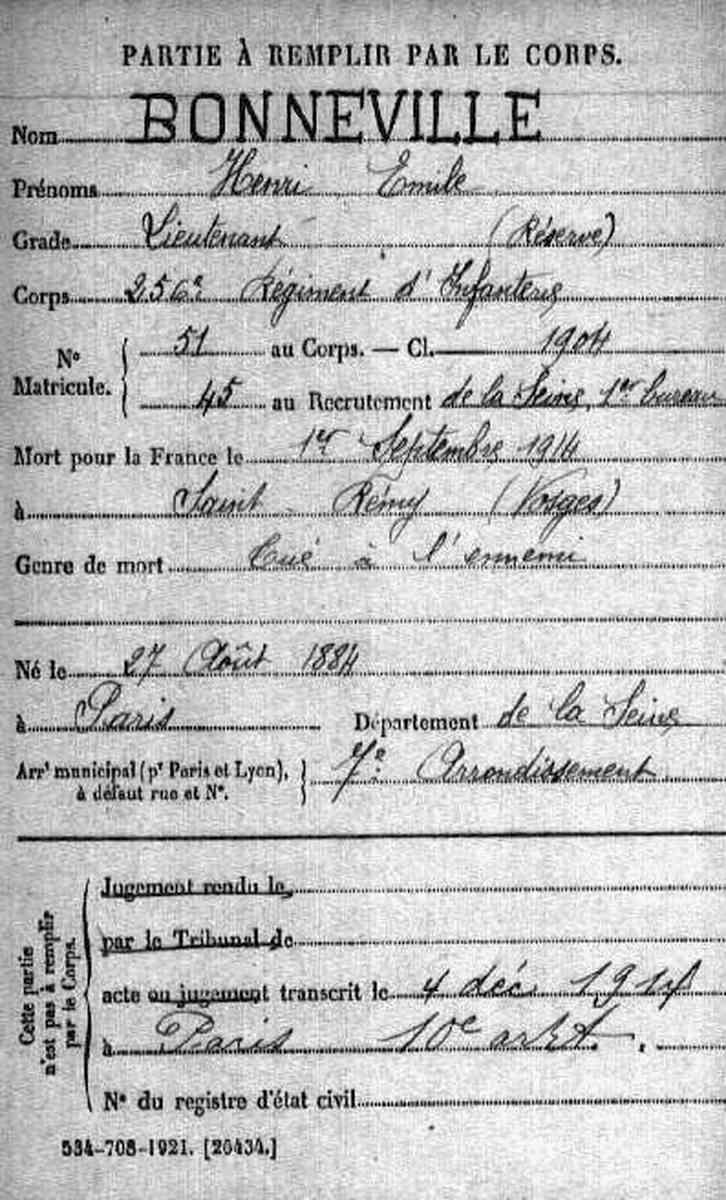 PARTIE À REMPLIR PAR LE CORPS.
Nom BONNEVILLE
Prénoms Henri Emile
Grade Lieutenant (Réserve)
Corps 256e Régiment d'Infanterie
N° Matricule. 51 au Corps. — Cl. 1904
45 au Recrutement de la Seine, 1er bureau
Mort pour la France le 1er Septembre 1914
à Saint Rémy (Vosges)
Genre de mort Tué à l'ennemi
Né le 27 Août 1884
à Paris Département de la Seine
Arrt municipal (pr Paris et Lyon), 7e Arrondissement
à défaut rue et N°.
Cette partie n'est pas à remplir par le Corps.
Jugement rendu le
par le Tribunal de
acte ou jugement transcrit le 4 déc 1914
à Paris 10e arrt.
N° du registre d'état civil
534-708-1921. [26434.]